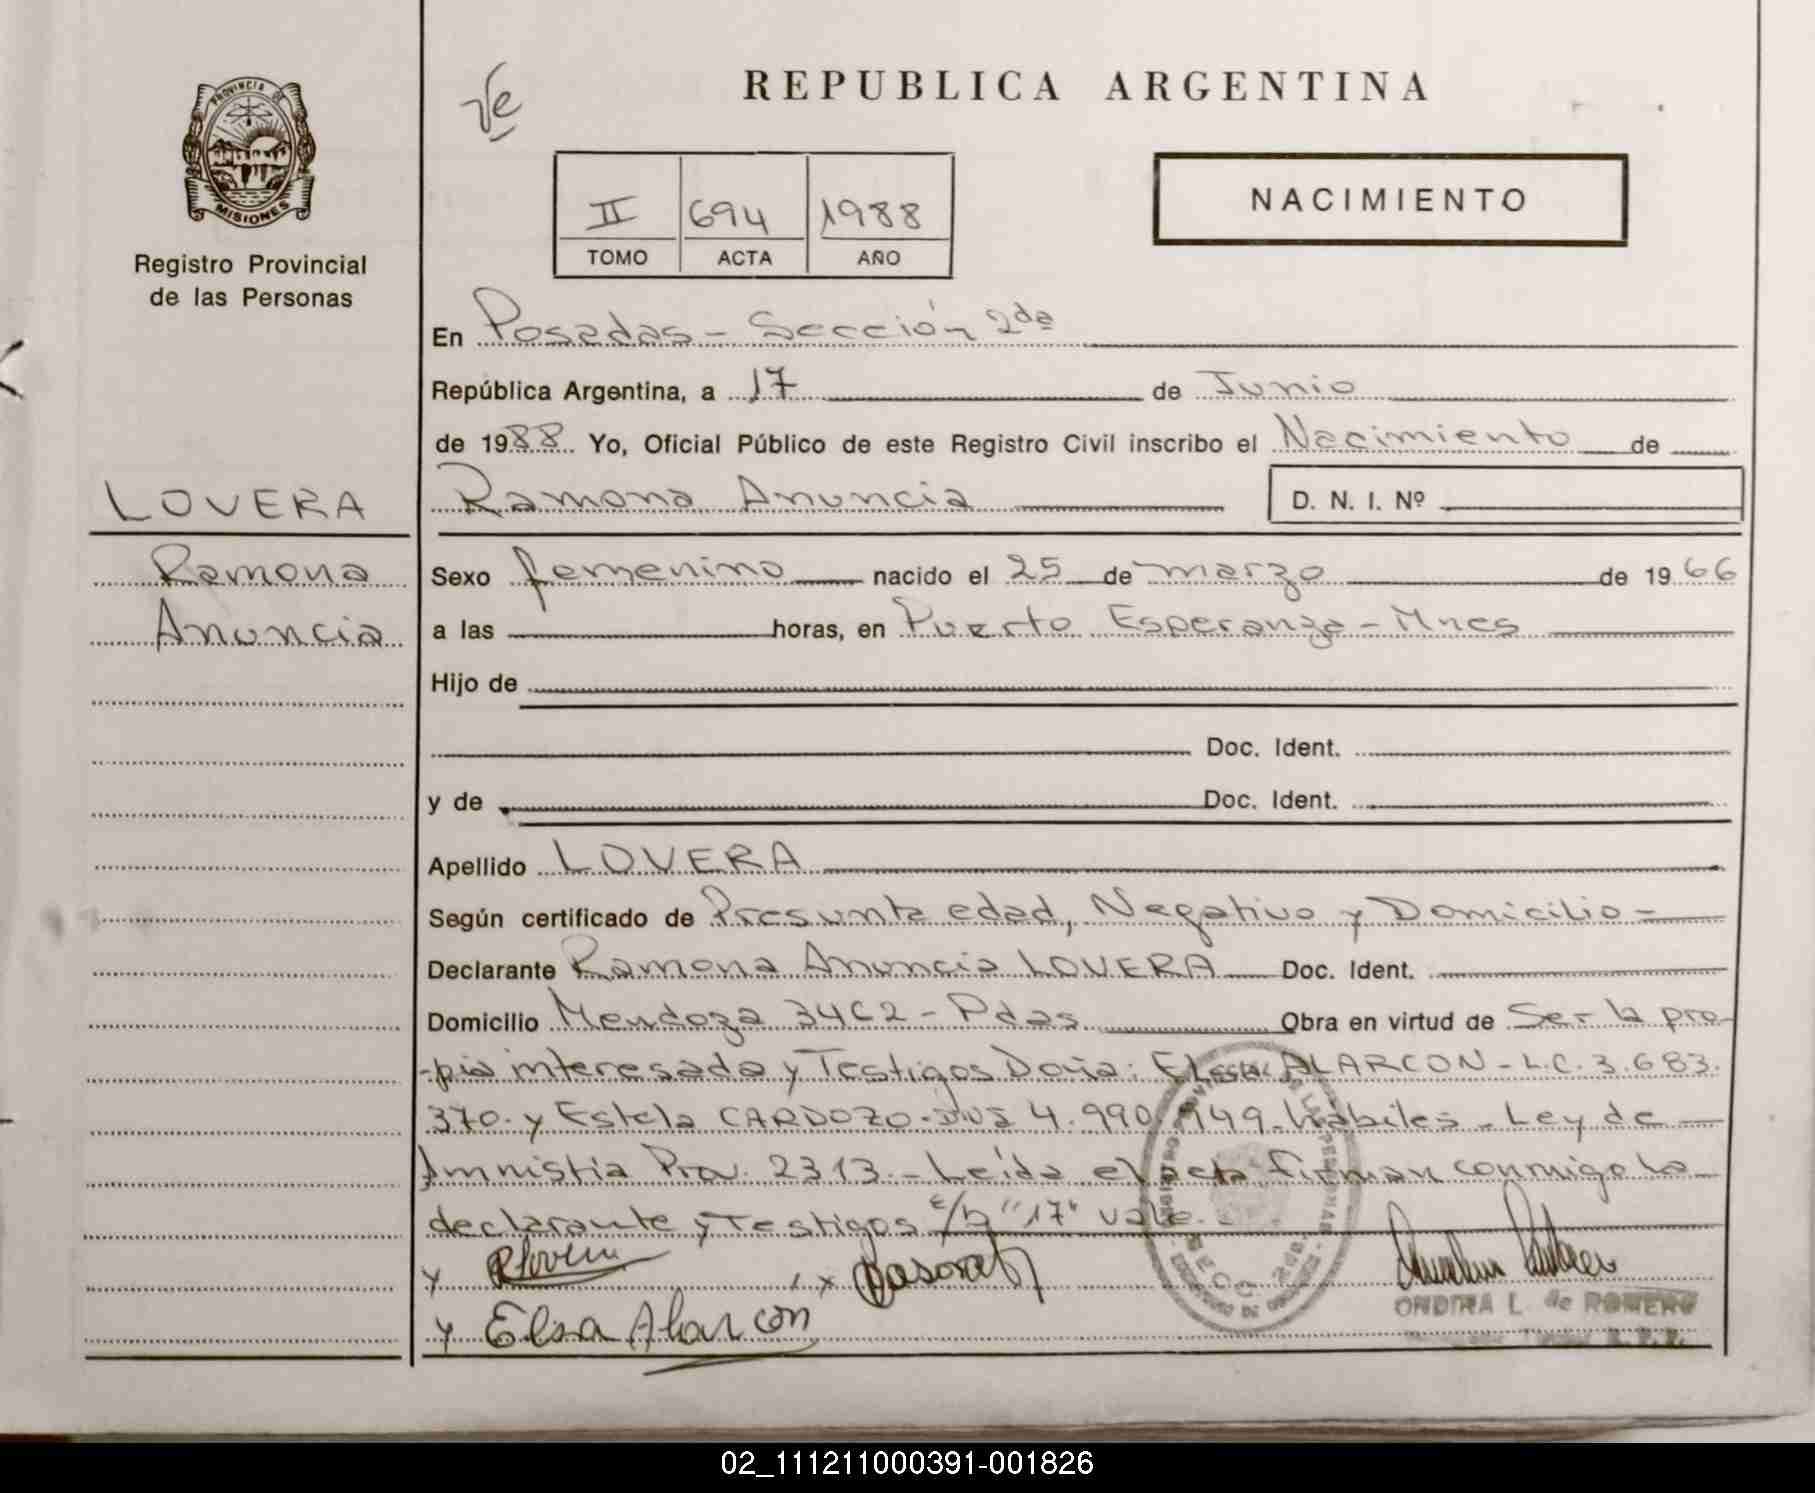 PROVINCIA DE
MISIONES
Registro Provincial
de las Personas
LOVERA
Ramona
Anuncia
REPUBLICA ARGENTINA
II 694 1988
TOMO ACTA AÑO
NACIMIENTO
En Posadas - Sección 2da
República Argentina, a 17 de Junio
de 1988 Yo, Oficial Público de este Registro Civil inscribo el Nacimiento de
Ramona Anuncia D. N. I. Nº
Sexo femenino nacido el 25 de marzo de 1966
a las horas, en Puerto Esperanza - Mnes
Hijo de
Doc. Ident.
y de Doc. Ident.
Apellido LOVERA
Según certificado de Presunta edad, Negativo y Domicilio -
Declarante Ramona Anuncia LOVERA Doc. Ident.
Domicilio Mendoza 3462 - Pdas Obra en virtud de Ser la pro-
-pia interesada y Testigos Doña: Elsa ALARCON - L.C. 3.683.
370. y Estela CARDOZO - DNI 4.990.949 - hábiles - Ley de
Amnistia Prov. 2313. - Leída el acta firman conmigo la
declarante y Testigos. e/b "17" vale. -
y RLovera
y Elsa Alarcon
ONDINA L. de ROMERO
02_111211000391-001826